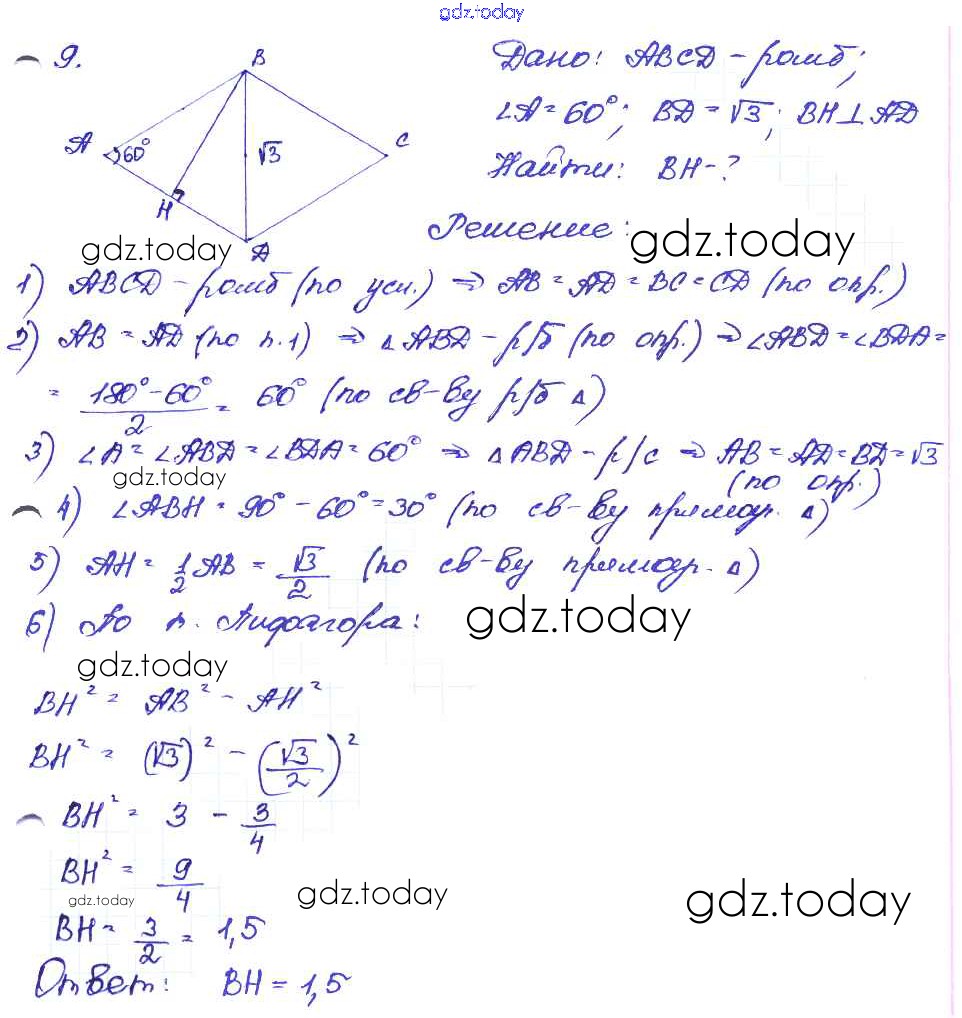 gdz.today
9.
B
A
60°
√3
C
H
Д
Дано: ABCD - ромб;
∠A = 60°; BD = √3; BH ⊥ AD
Найти: BH - ?
Решение:
gdz.today
gdz.today
1) ABCD - ромб (по усл.) ⇒ AB = AD = BC = CD (по опр.)
2) AB = AD (по п.1) ⇒ △ABD - р/б (по опр.) ⇒ ∠ABD = ∠BDA =
= (180° - 60°)/2 = 60° (по св-ву р/б △)
3) ∠A = ∠ABD = ∠BDA = 60° ⇒ △ABD - р/с ⇒ AB = AD = BD = √3
(по опр.)
gdz.today
4) ∠ABH = 90° - 60° = 30° (по св-ву прямоуг. △)
5) AH = 1/2 AB = √3/2 (по св-ву прямоуг. △)
6) По т. Пифагора:
gdz.today
gdz.today
BH² = AB² - AH²
BH² = (√3)² - (√3/2)²
BH² = 3 - 3/4
BH² = 9/4
gdz.today
gdz.today
gdz.today
BH = 3/2 = 1,5
Ответ: BH = 1,5